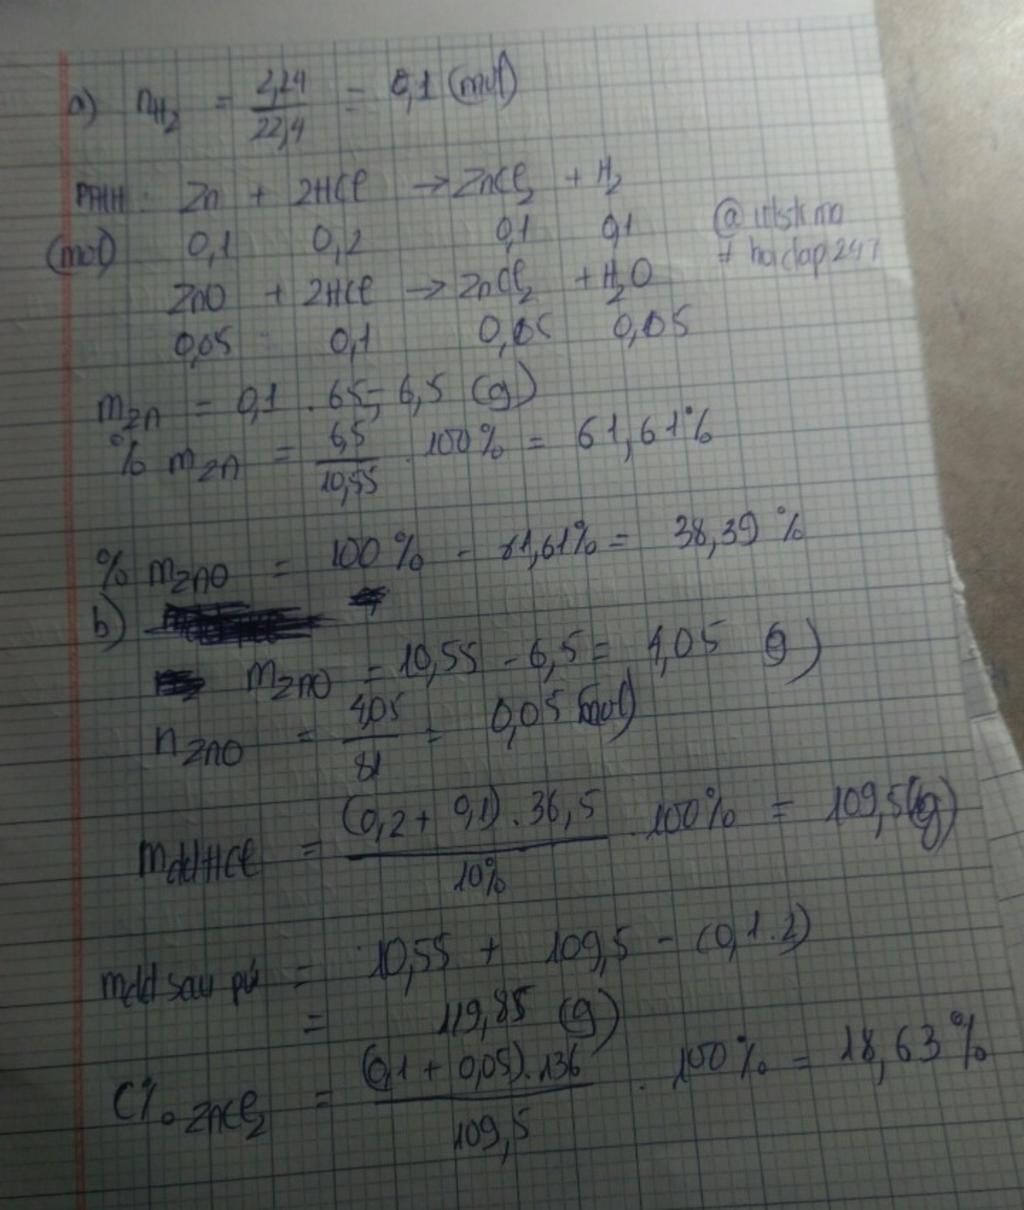 a) nH₂ = 2,24/22,4 = 0,1 (mol)
PTHH: Zn + 2HCl → ZnCl₂ + H₂
(mol) 0,1 0,2 0,1 0,1
ZnO + 2HCl → ZnCl₂ + H₂O
0,05 0,1 0,05 0,05
mZn = 0,1 . 65 = 6,5 (g)
% mZn = 6,5/10,55 . 100% = 61,61%
% mZnO = 100% - 61,61% = 38,39 %
b)
mZnO = 10,55 - 6,5 = 4,05 (g)
nZnO = 4,05/81 = 0,05 (mol)
mddHCl = (0,2 + 0,1) . 36,5/10% . 100% = 109,5 (g)
mdd sau pứ = 10,55 + 109,5 - (0,1 . 2)
= 119,85 (g)
C%ZnCl₂ = (0,1 + 0,05) . 136/109,5 . 100% = 18,63%